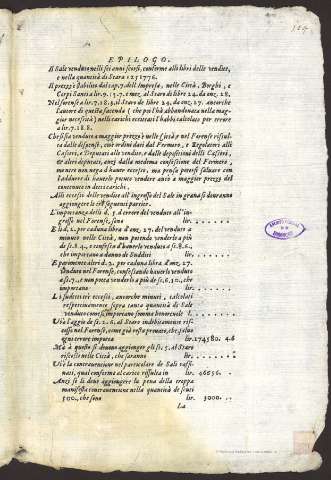 EPILOGO.
Il Sale venduto nelli sei anni scorsi, conforme alli libri delle vendite,
e nella quantità di Stara 1251776.
Il prezzo è stabilito dal cap. 7. dell'Impresa, nelle Città, Borghi, e
Corpi Santi a lir. 9. 15. 7. e mez. al Staro de libre 24. da onz. 28.
Nel forense a lir. 7. 18. 3. il Staro de libre 24. da onz. 27. ancorche
l'autore di questa facenda (che poi l'hà abbandonata nella mag-
gior necessità) nelli carichi eccitati l'habbi calcolato per errore
a lir. 7. 18. 8.
Che si sia venduto a maggior prezzo nelle Città, e nel Forense risulta
da le difese, con ordini dati dal Fermaro, e Regolatore alli
Casieri, e Deputati alle vendite, e dalle depositioni delli Casieri,
et altri deputati, anzi dalla medema confessione del Fermaro,
mentre non nega d'hauer ecceduto, ma pensa potersi saluare con
l'addurre di hauerlo potuto vendere anco a maggior prezzo del
contenuto in detti carichi.
Alli eccessi delle vendite all'ingrosso del Sale in grana si douranno
aggiongere le seguenti partite.
L'importanza delli d. 5. d'errore del venduto all'in-
grosso nel Forense, sono lir.
E li d. 2. per caduna libra d'onz. 27. del venduto a
minuto nelle Città, non potendo venderlo a più
de ss. 8. 4. e confessa d'hauerlo venduto a ss. 8. 6.
che importano a danno de Sudditi lir.
E parimente altri d. 2. per caduna libra d'onz. 27.
venduto nel Forense, confessando hauerlo venduto
a ss. 7. e non poteua venderlo a più de ss. 6. 10. che
importano lir.
Li sudetti eccessi, ancorche minuti, calcolati
respettiuamente sopra tanta quantità di Sale
venduto come sì, importano somma honoreuole l.
Và l'aggio de ss. 2. 6. al Staro indebitamente ris-
cosso nel Forense, come già resta prouato, che saluo
ogni errore importa lir. 274580. 4. 6
Mà à questo si deuono aggionger gli ss. 5. al Staro
riscossi nelle Città, che saranno lir.
Và la contrauentione nel particolare de Sali raffi-
nati, qual conforme al carico risulta in lir. 46656.
Anzi se li deue aggiungere la pena della troppa
manifesta contrauentione nella quantità de scuti
500., che sono lir. 3000.
La